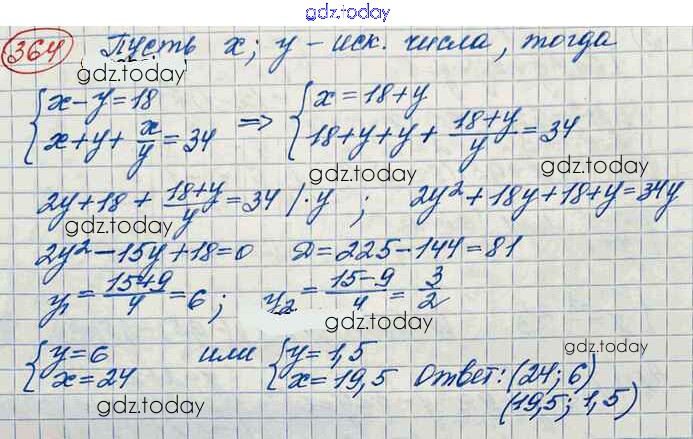 gdz.today
364 Пусть x; y – иск. числа, тогда
gdz.today
{x-y=18 => {x=18+y
{x+y+x/y=34 {18+y+y+(18+y)/y=34
gdz.today
gdz.today
2y+18+(18+y)/y=34 /·y ; 2y²+18y+18+y=34y
gdz.today
gdz.today
2y²-15y+18=0 D=225-144=81
y₁=(15+9)/4=6; y₂=(15-9)/4=3/2
gdz.today
{y=6 или {y=1,5
{x=24 {x=19,5 Ответ: (24; 6)
gdz.today
(19,5; 1,5)
gdz.today